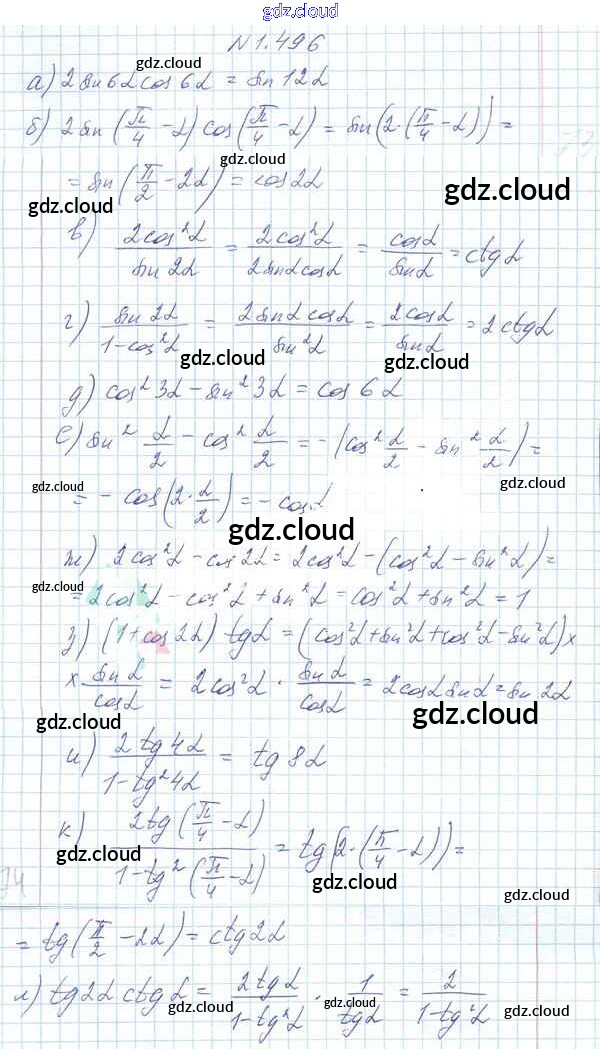 gdz.cloud
N 1.496
gdz.cloud
а) 2 sin 6α cos 6α = sin 12α
gdz.cloud
б) 2 sin (π/4 - α) cos (π/4 - α) = sin (2·(π/4 - α)) =
= sin (π/2 - 2α) = cos 2α
gdz.cloud gdz.cloud
в) 2cos²α/sin 2α = 2cos²α/2 sinα cosα = cosα/sinα = ctg α
gdz.cloud
г) sin 2α/1-cos²α = 2 sinα cosα/sin²α = 2cosα/sinα = 2 ctg α
gdz.cloud gdz.cloud
д) cos² 3α - sin² 3α = cos 6α
gdz.cloud
е) sin² α/2 - cos² α/2 = - (cos² α/2 - sin² α/2) =
gdz.cloud gdz.cloud
= - cos (2·α/2) = - cos α
gdz.cloud
ж) 2cos²α - cos 2α = 2cos²α - (cos²α - sin²α) =
gdz.cloud
= 2cos²α - cos²α + sin²α = cos²α + sin²α = 1
з) (1 + cos 2α) tg α = (cos²α + sin²α + cos²α - sin²α) ×
× sin α/cos α = 2cos²α · sin α/cos α = 2 cosα sinα = sin 2α
gdz.cloud gdz.cloud
и) 2 tg 4α/1 - tg² 4α = tg 8α
gdz.cloud
к) 2tg (π/4 - α)/1 - tg² (π/4 - α) = tg (2·(π/4 - α)) =
gdz.cloud gdz.cloud
gdz.cloud
= tg (π/2 - 2α) = ctg 2α
л) tg 2α ctg α = 2 tg α/1 - tg²α · 1/tg α = 2/1 - tg²α
gdz.cloud gdz.cloud gdz.cloud